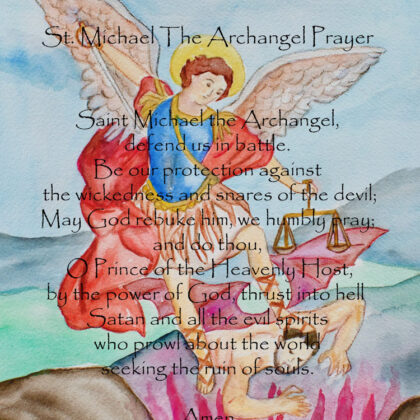 St. Michael The Archangel Prayer
Saint Michael the Archangel,
defend us in battle.
Be our protection against
the wickedness and snares of the devil;
May God rebuke him, we humbly pray;
and do thou,
O Prince of the Heavenly Host,
by the power of God, thrust into hell
Satan and all the evil spirits
who prowl about the world
seeking the ruin of souls.
Amen